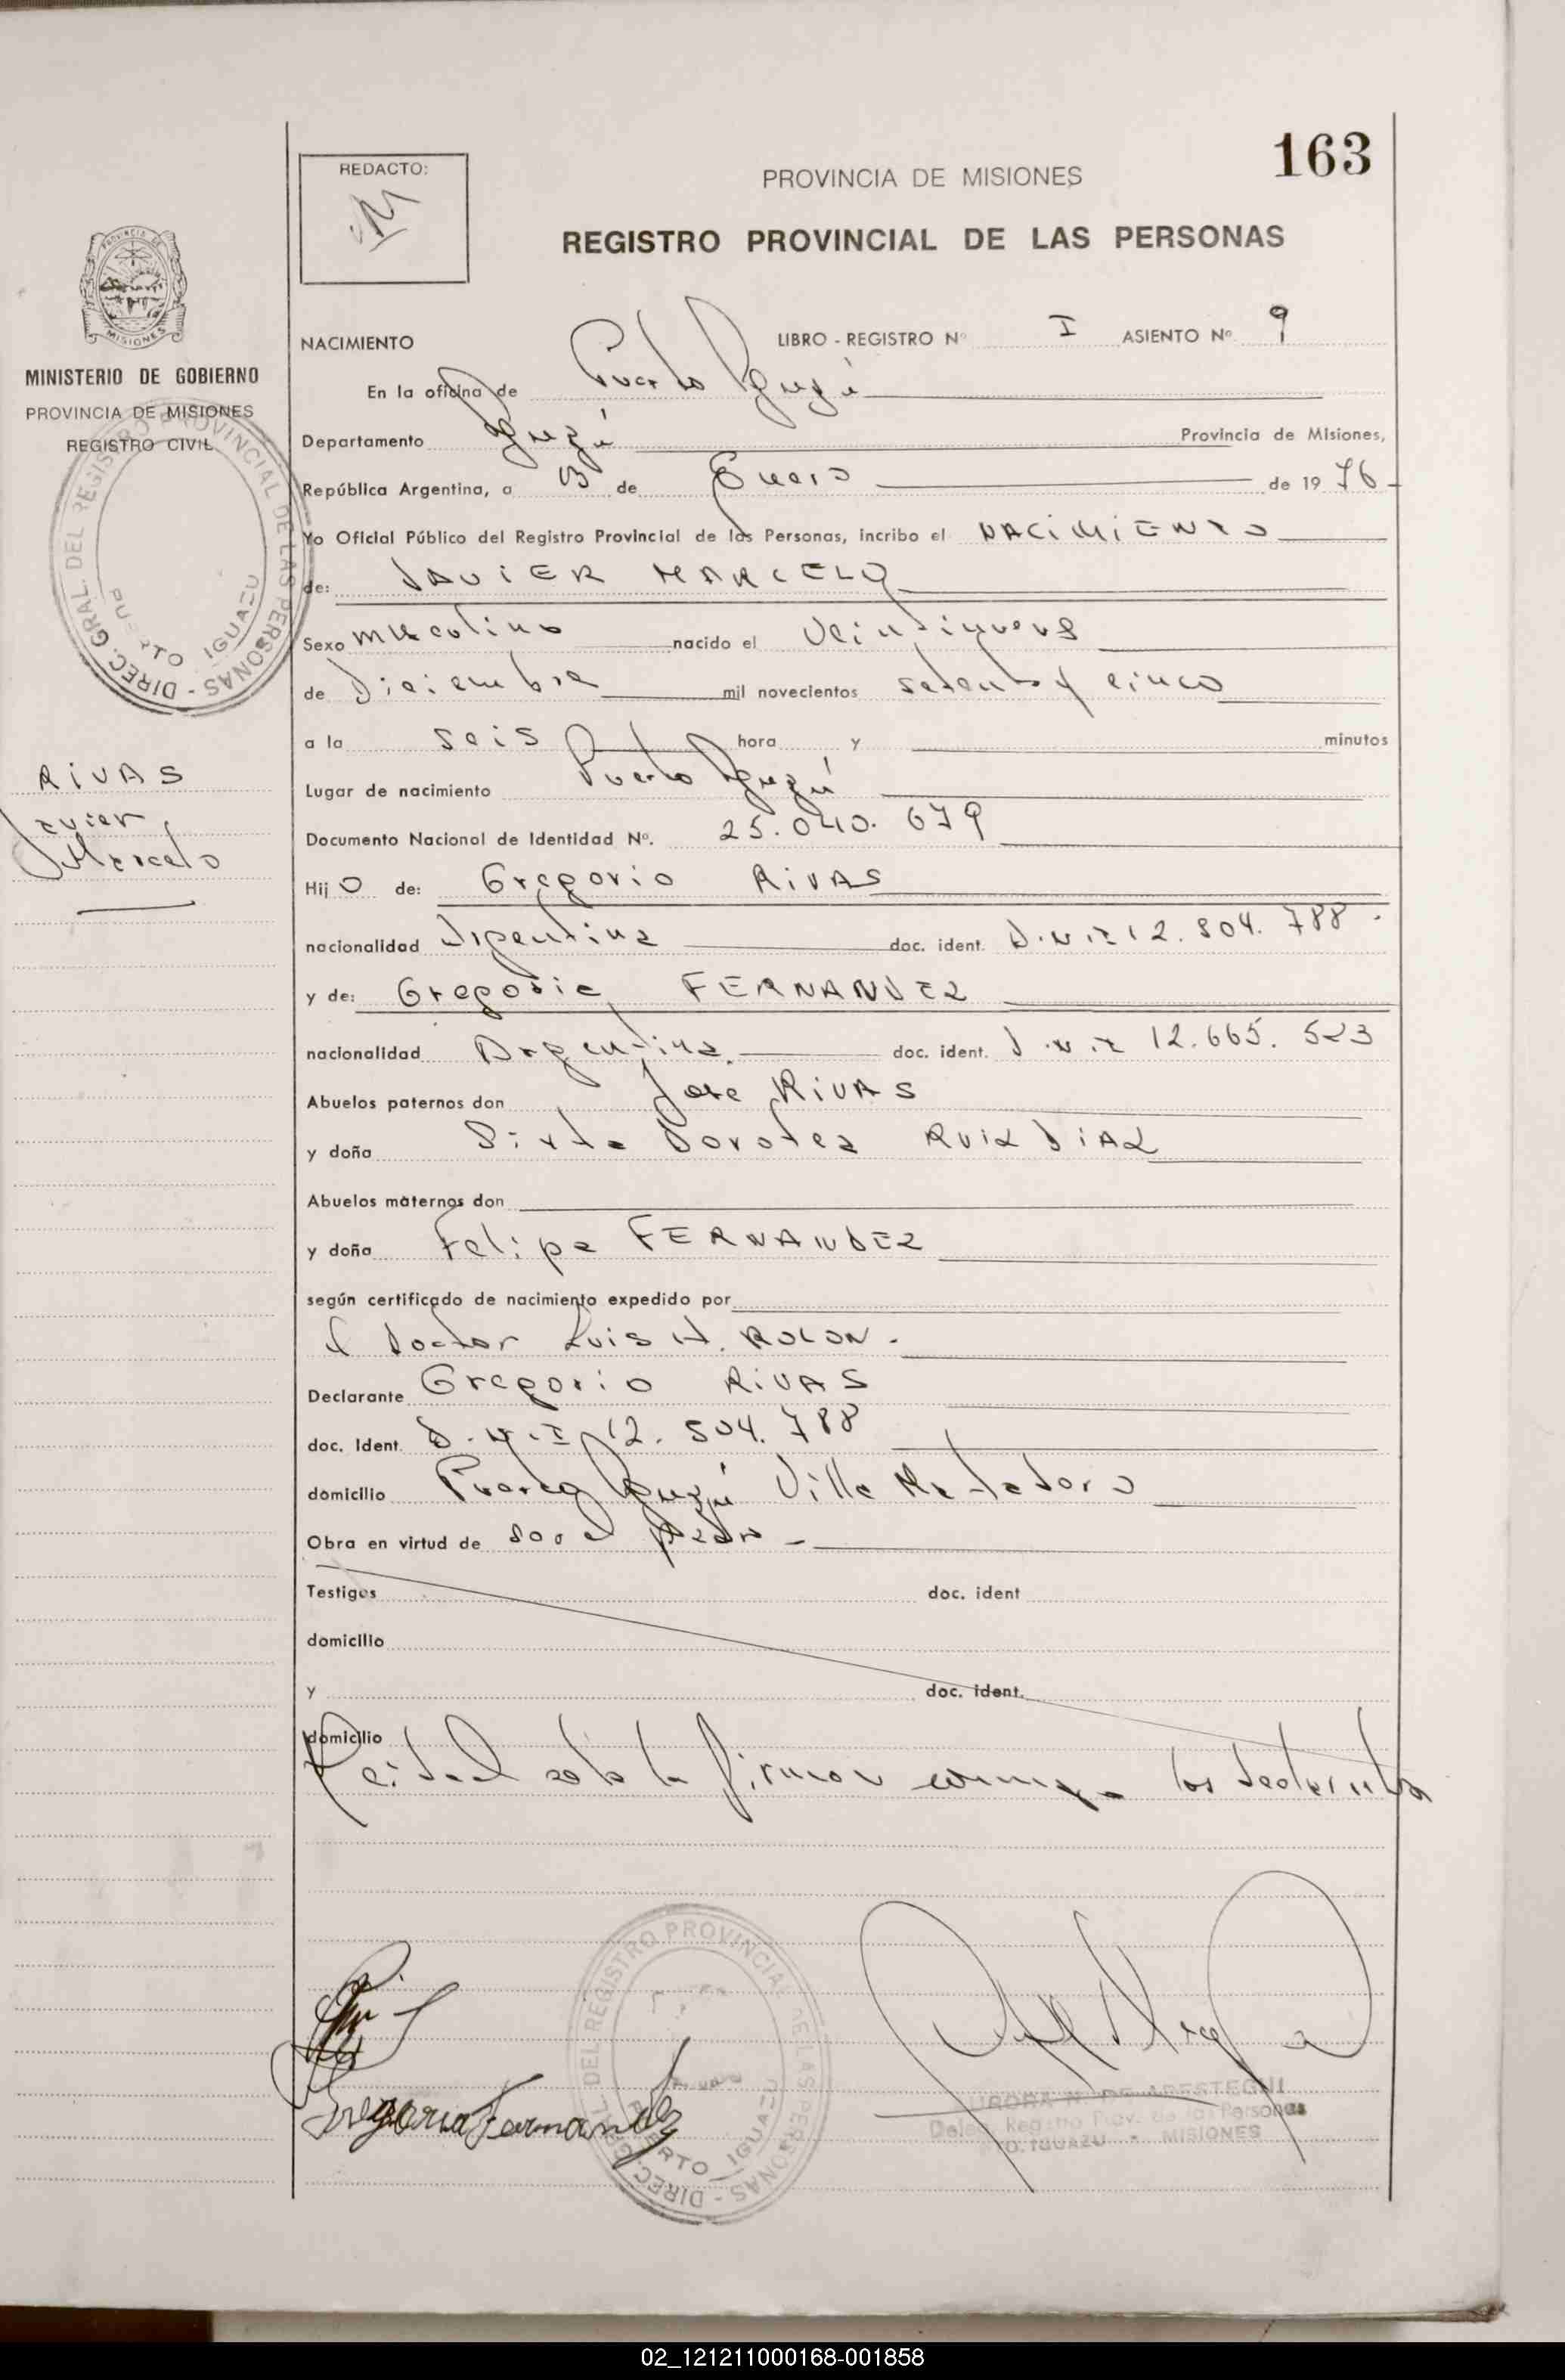 163
REDACTO:
PROVINCIA DE MISIONES
REGISTRO PROVINCIAL DE LAS PERSONAS
PROVINCIA DE
MISIONES
MINISTERIO DE GOBIERNO
PROVINCIA DE MISIONES
REGISTRO CIVIL
DIREC. GRAL. DEL REGISTRO PROVINCIAL DE LAS PERSONAS
PUERTO IGUAZU
RIVAS
Javier
Marcelo
NACIMIENTO LIBRO - REGISTRO Nº I ASIENTO Nº 9
En la oficina de Puerto Iguazú
Departamento Iguazú Provincia de Misiones,
República Argentina, a 03 de Enero de 1976
Yo Oficial Público del Registro Provincial de las Personas, incribo el NACIMIENTO
de: JAVIER MARCELO
Sexo masculino nacido el veintinueve
de Diciembre mil novecientos setenta y cinco
a la seis hora y minutos
Lugar de nacimiento Puerto Iguazú
Documento Nacional de Identidad Nº. 25.040.679
Hijo de: Gregorio RIVAS
nacionalidad Argentina doc. ident. D.N.I 12.804.788
y de: Gregoria FERNANDEZ
nacionalidad Argentina doc. ident. D.N.I 12.665.523
Abuelos paternos don José RIVAS
y doña Sixta Dorotea RUIZ DIAZ
Abuelos maternos don
y doña Felipa FERNANDEZ
según certificado de nacimiento expedido por
el Doctor Luis H. ROLON.
Declarante Gregorio RIVAS
doc. Ident. D.N.I 12.804.788
domicilio Puerto Iguazú Villa Matadero
Obra en virtud de ser el Padre
Testigos doc. ident
domicilio
y doc. ident.
domicilio
Leida el acta la firman conmigo los declarantes
Gregoria Fernandez
DIREC. GRAL. DEL REGISTRO PROVINCIAL DE LAS PERSONAS
PUERTO IGUAZU
AURORA N. DE ARESTEGUI
Deleg. Registro Prov. de las Personas
PTO. IGUAZU - MISIONES
02_121211000168-001858